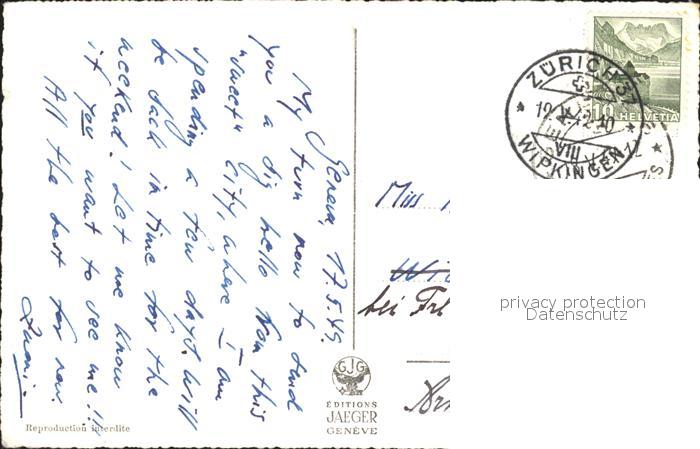 Geneva, 17.5.49.
My turn now to send
you a big hello from this
"sweet" city, where I am
spending a few days. Will
be back in time for the
weekend! Let me know
if you want to see me!!
All the best for now.
ZÜRICH 37
19. V. 12-10
VIII
WIPKINGEN
10 HELVETIA
Miss
Wi
bei Frl
privacy protection
Datenschutz
GJG
ÉDITIONS
JAEGER
GENÈVE
Reproduction interdite